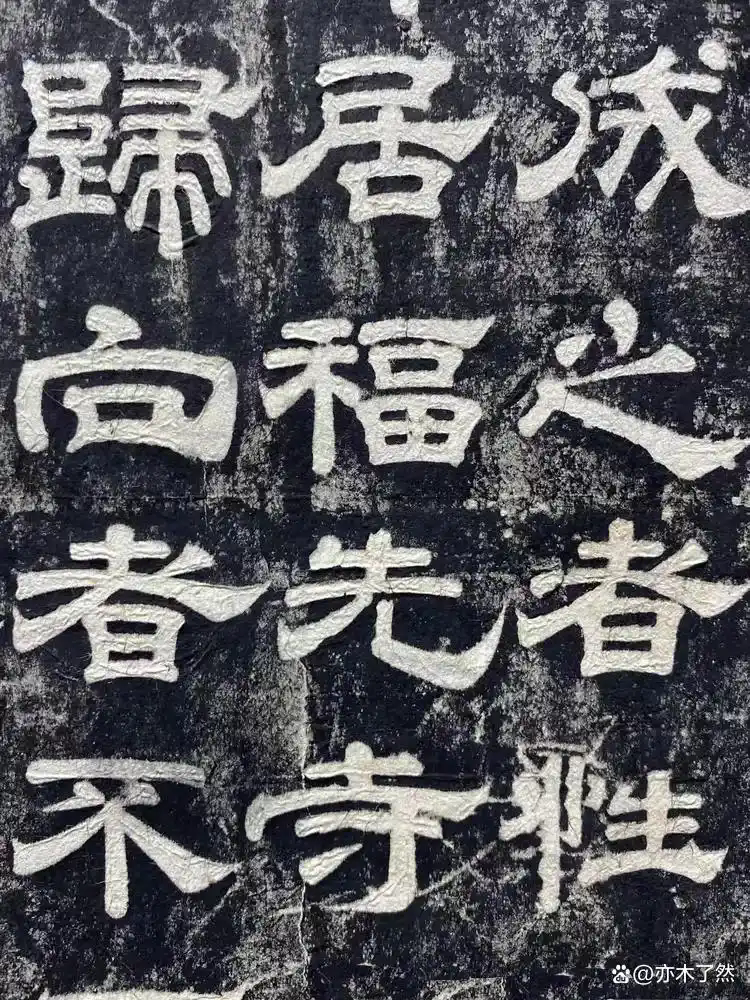 成之者性
居福先寺
歸向者不
@亦木了然